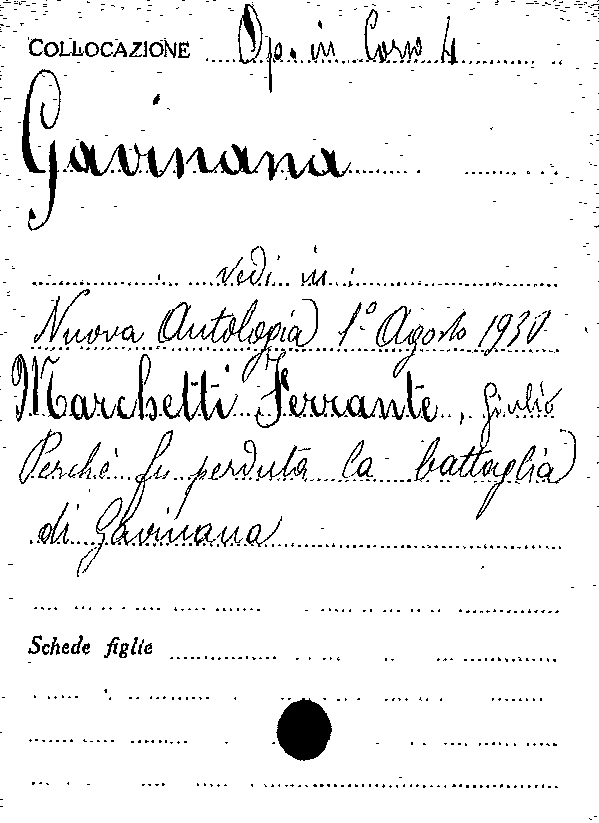 COLLOCAZIONE Op. in Corso 4
Gavinana
vedi in:
Nuova Antologia 1º Agosto 1930
Marchetti Ferrante, Giulio
Perchè fu perduta la battaglia
di Gavinana
Schede figlie